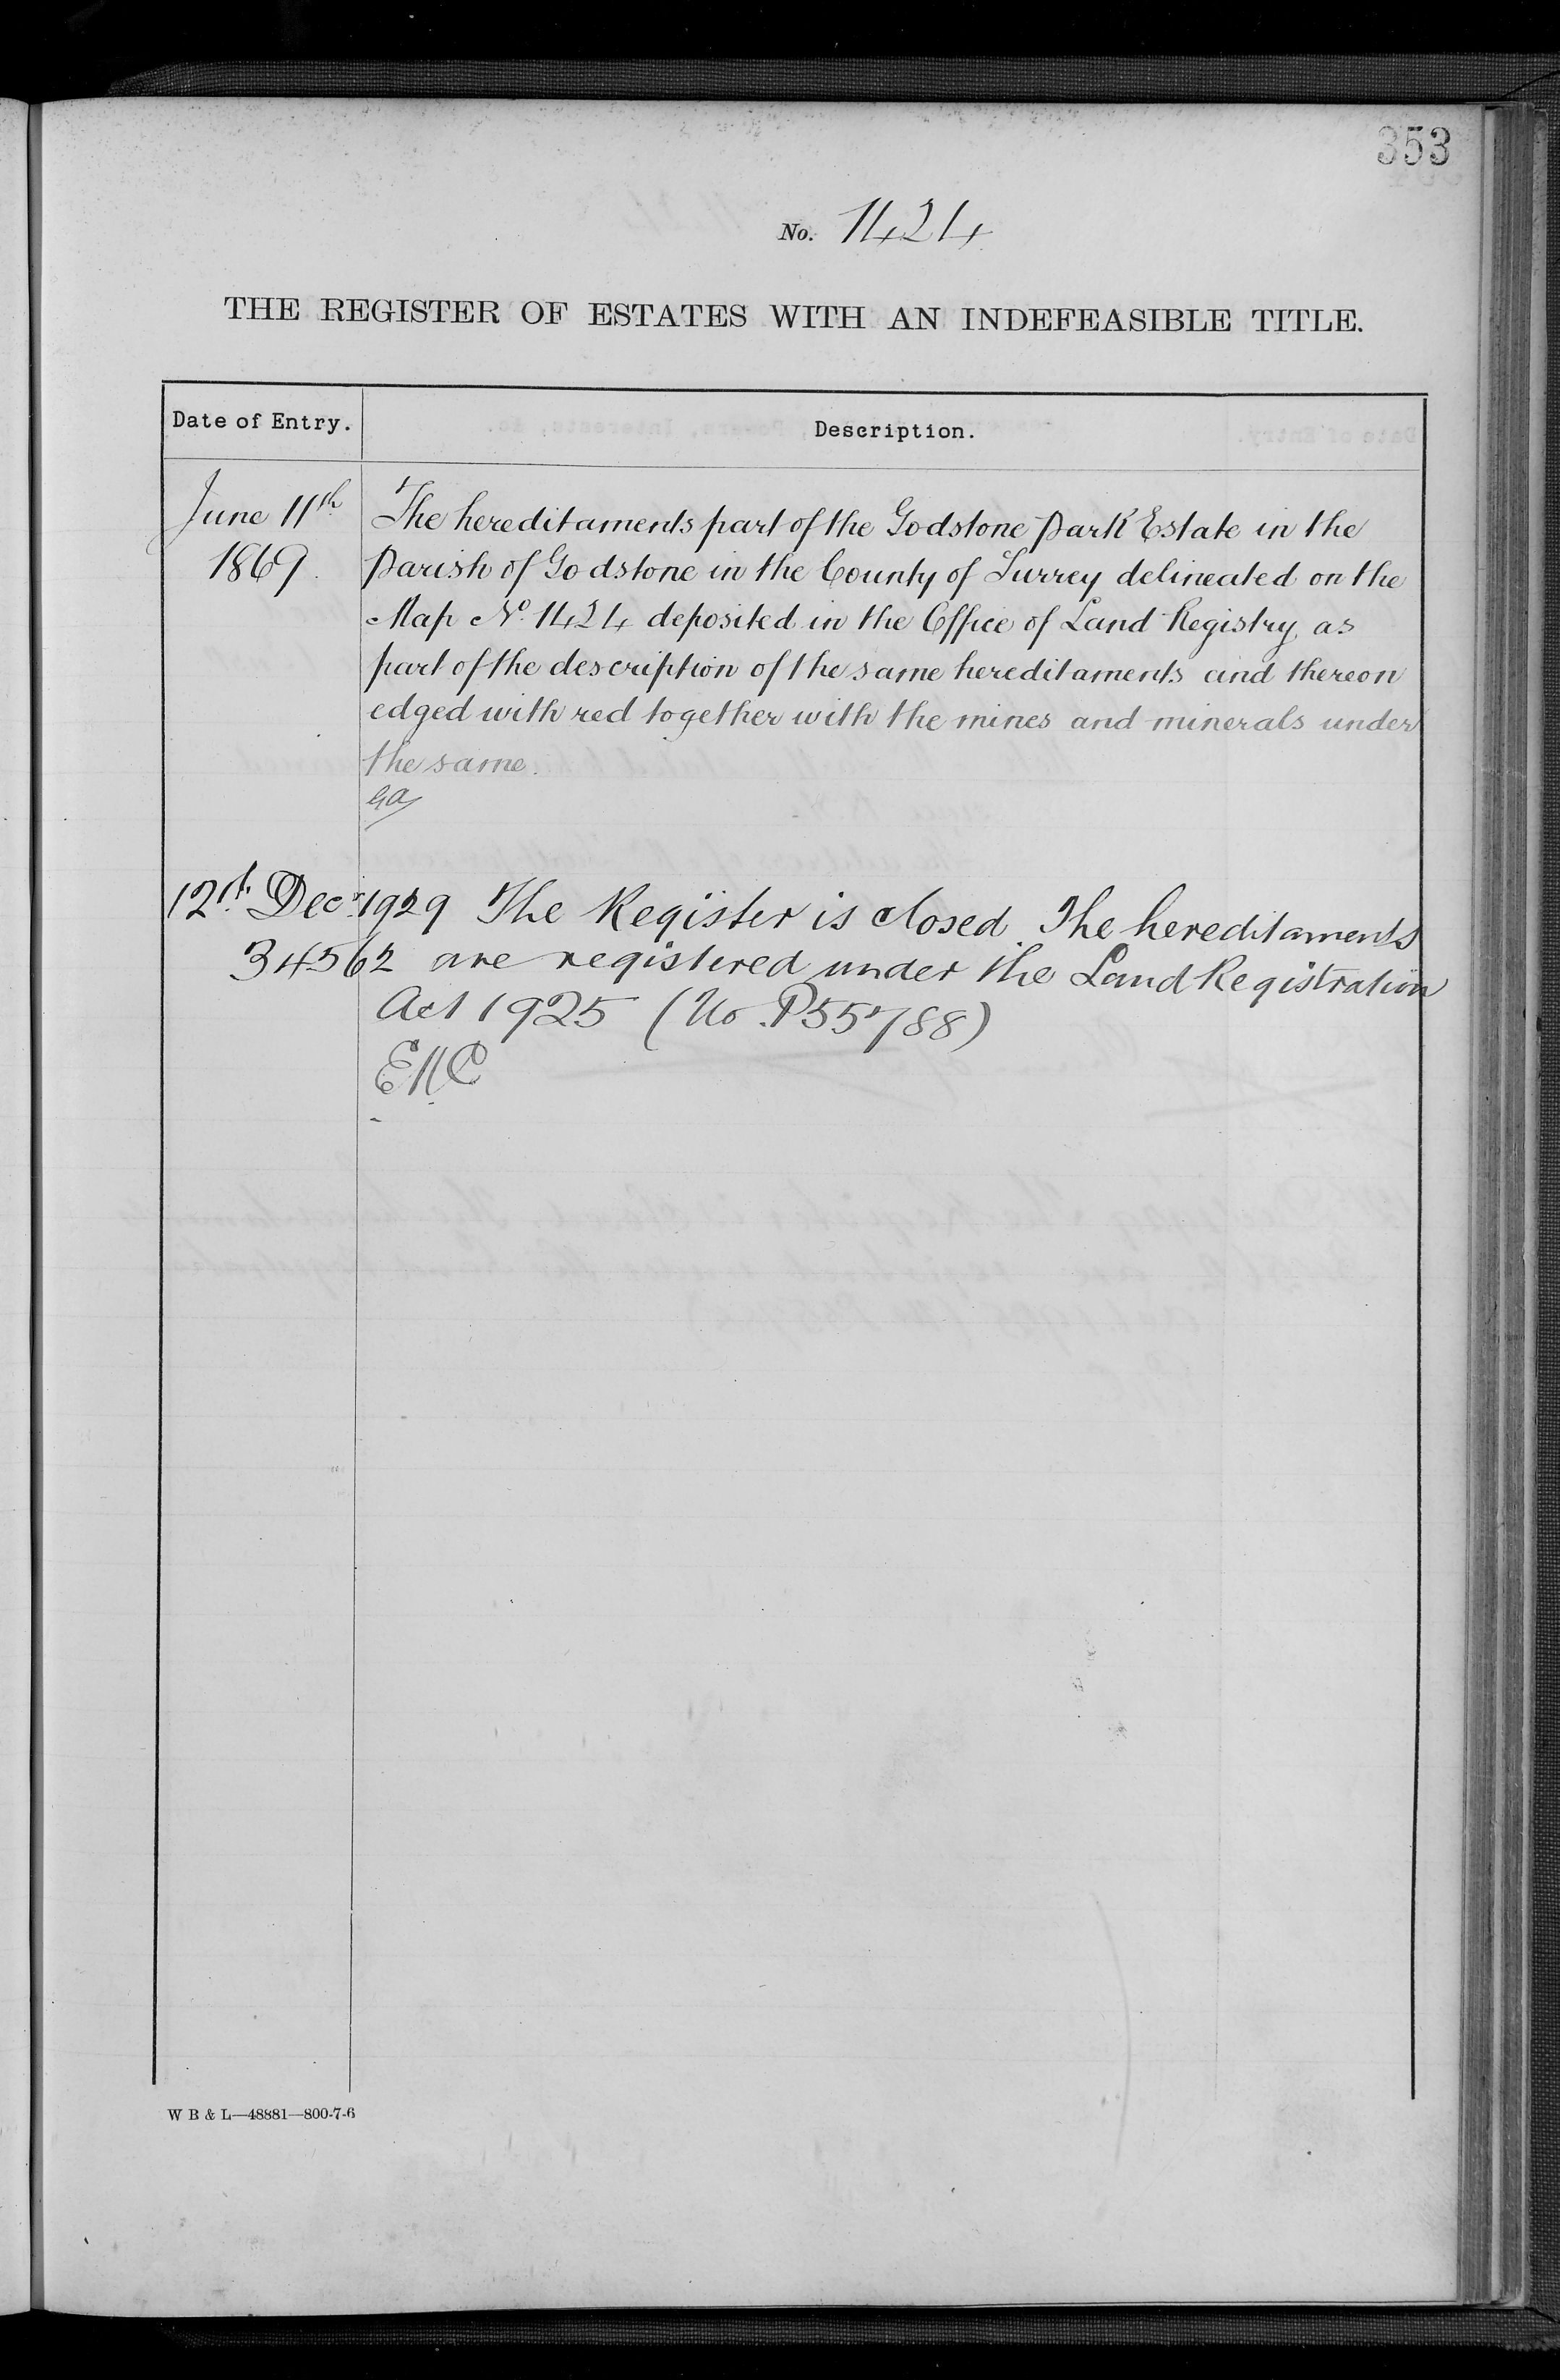 353
No. 1424
THE REGISTER OF ESTATES WITH AN INDEFEASIBLE TITLE.
Date of Entry. Description.
June 11th The hereditaments part of the Godstone Park Estate in the
1869. Parish of Godstone in the County of Surrey delineated on the
Map No. 1424 deposited in the Office of Land Registry as
part of the description of the same hereditaments and thereon
edged with red together with the mines and minerals under
the same.
12th Decr 1929 The Register is closed The hereditaments
34562 are registered under the Land Registration
Act 1925 (No. P55788)
W B & L—48881—800-7-6